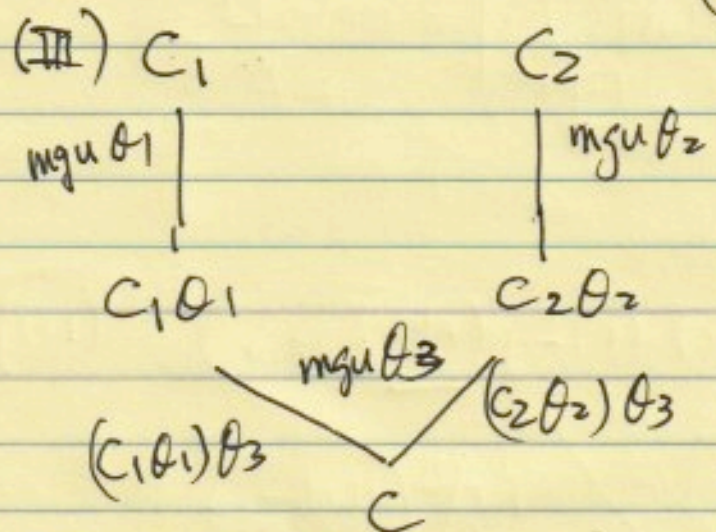 (III) C1 C2
mgu θ1 mgu θ2
C1θ1 C2θ2
mgu θ3
(C1θ1)θ3 (C2θ2)θ3
C